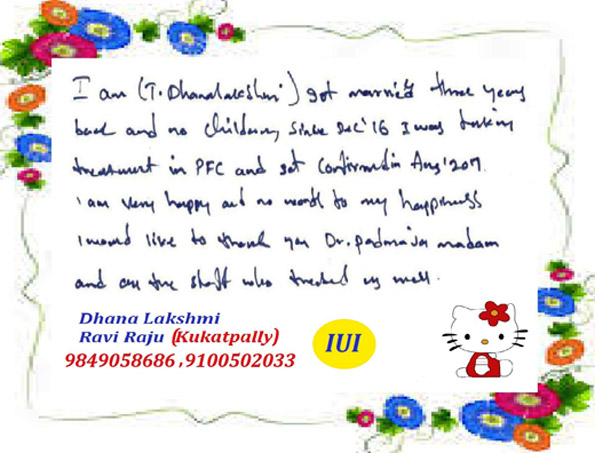 I am (T. Dhanalakshmi) got married three years
back and no children, Since Dec'16 I was taking
treatment in PFC and got Confirmed in Aug'2017.
I am very happy and no words to my happiness
I would like to thank you Dr. padmaja madam
and all the staff who treated us well.
Dhana Lakshmi
Ravi Raju (Kukatpally)
9849058686 , 9100502033
IUI